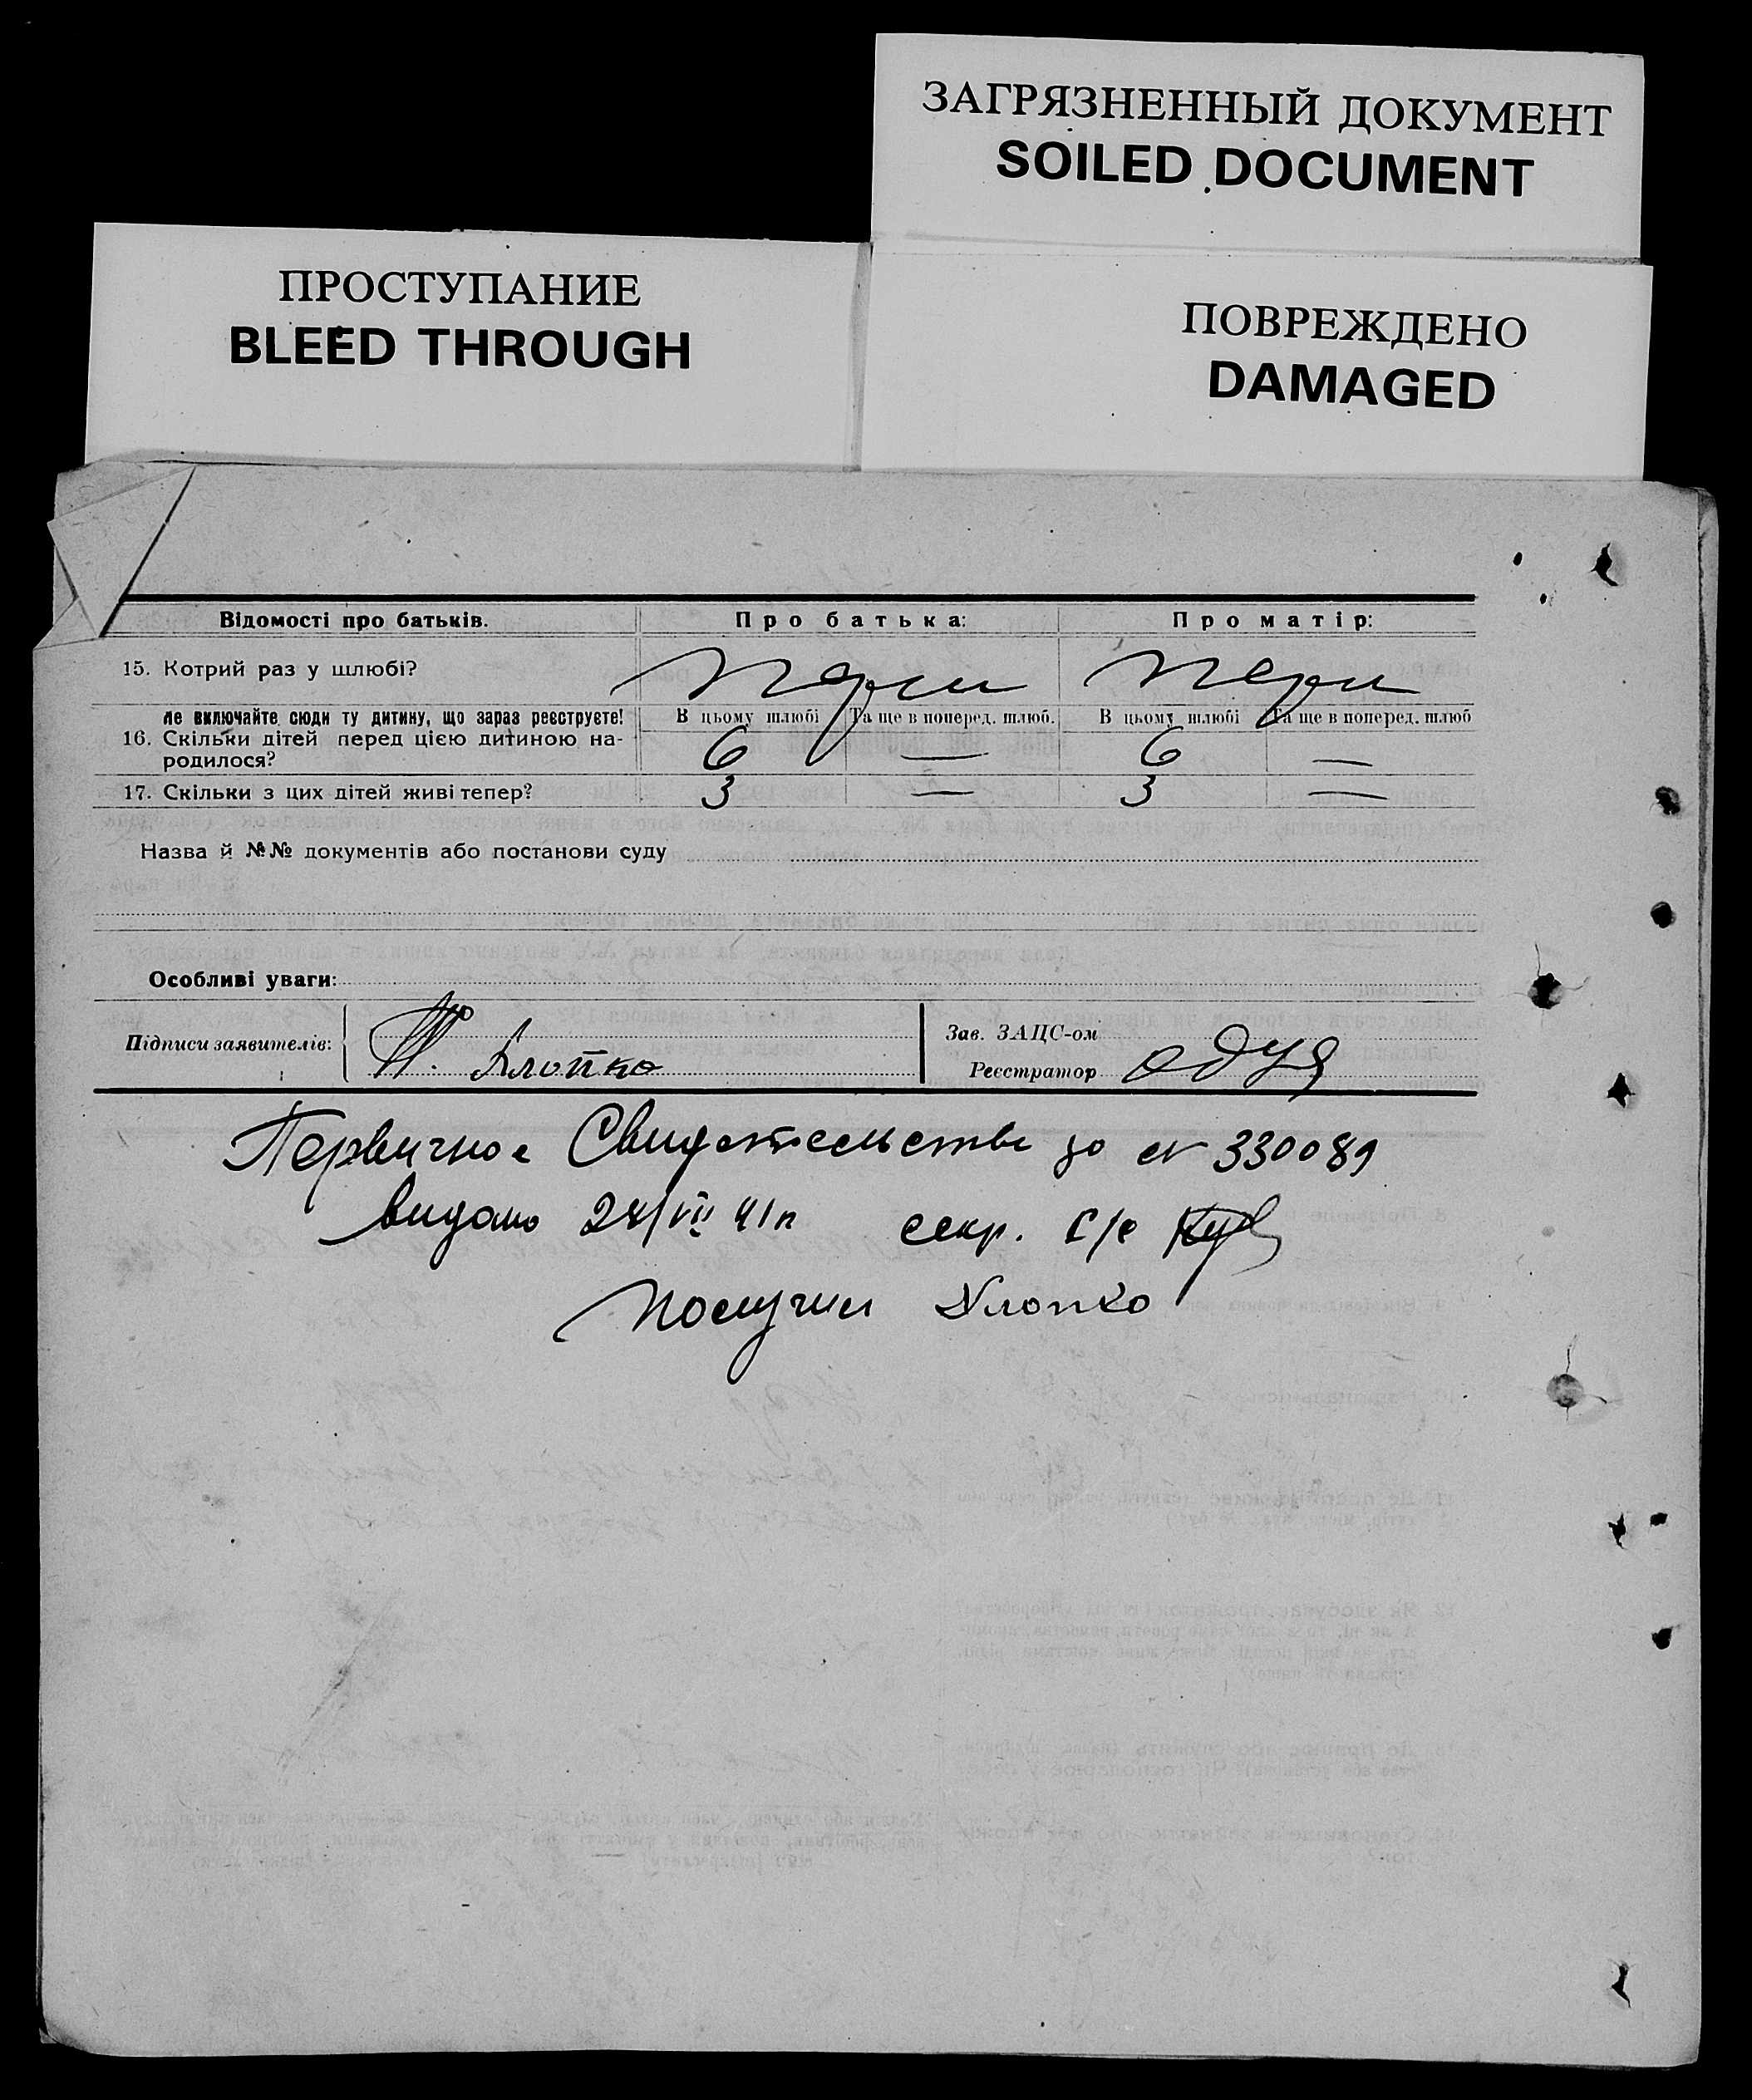 ЗАГРЯЗНЕННЫЙ ДОКУМЕНТ
SOILED DOCUMENT
ПРОСТУПАНИЕ
BLEED THROUGH
ПОВРЕЖДЕНО
DAMAGED
Відомості про батьків. Про батька: Про матір:
15. Котрий раз у шлюбі? перш перш
не включайте сюди ту дитину, що зараз реєструєте! В цьому шлюбі Та ще в поперед. шлюб. В цьому шлюбі Та ще в поперед. шлюб
16. Скільки дітей перед цією дитиною на-
родилося? 6 — 6 —
17. Скільки з цих дітей живі тепер? 3 — 3 —
Назва й №№ документів або постанови суду
Особливі уваги:
Підписи заявителів: Хлопко
Зав. ЗАЦС-ом
Реєстратор
Первичное Свидетельство за № 330089
видано 28/VII 41 р секр. С/с
Получил Хлопко